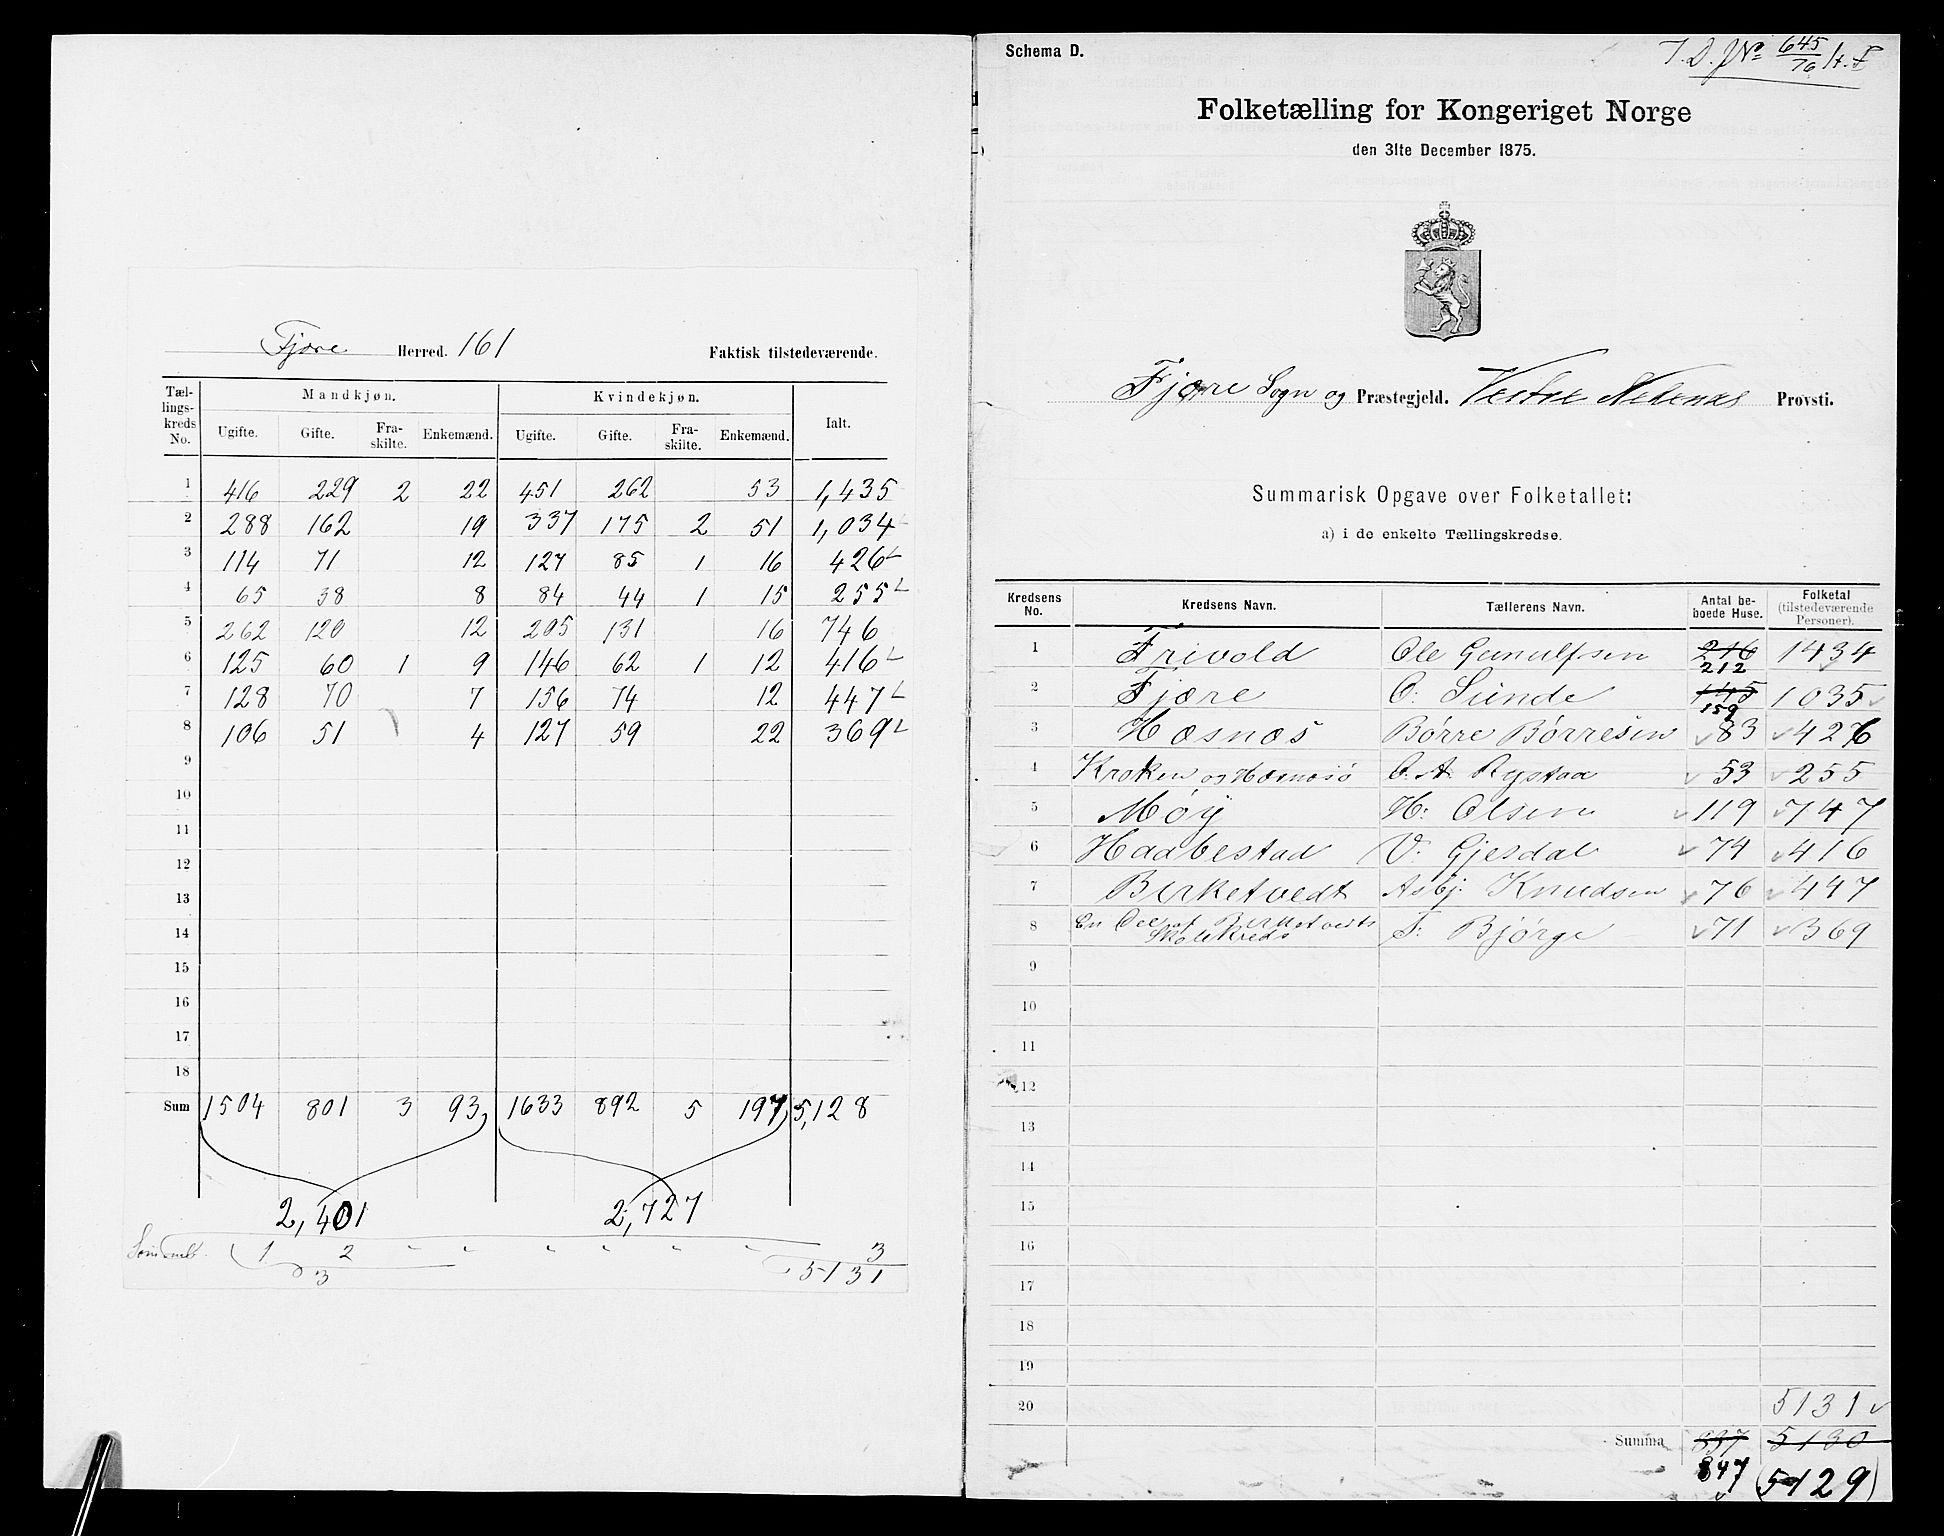 Fjære Herred. 161 Faktisk tilstedeværende.
Tæl-lings-kreds No. Mandkjøn. Kvindekjøn. Ialt.
Ugifte. Gifte. Fra-skilte. Enkemænd. Ugifte. Gifte. Fra-skilte. Enkemænd.
1 416 229 2 22 451 262 53 1,435
2 288 162 19 337 175 2 51 1,034
3 114 71 12 127 85 1 16 426
4 65 38 8 84 44 1 15 255
5 262 120 12 205 131 16 746
6 125 60 1 9 146 62 1 12 416
7 128 70 7 156 74 12 447
8 106 51 4 127 59 22 369
9
10
11
12
13
14
15
16
17
18
Sum 1504 801 3 93 1633 892 5 197 5,128
2,401 2,727
1 2 " " " " " " 3
3 5131
Schema D.
T. D. J No 645/76
Folketælling for Kongeriget Norge
den 31te December 1875.
Fjære Sogn og Præstegjeld. Vestre Nedenæs Provsti.
Summarisk Opgave over Folketallet:
a) i de enkelte Tællingskredse.
Kredsens No. Kredsens Navn. Tællerens Navn. Antal be-boede Huse. Folketal (tilstedeværende Personer).
1 Frivold Ole Gunulfsen 216 212 1434
2 Fjære O. Sunde 145 159 1035
3 Hæsnæs Børre Børresen 83 426
4 Kroken og Hæsnæsø O. A. Rystad 53 255
5 Møÿ H: Olsen 119 747
6 Haabestad V. Gjesdal 74 416
7 Birketvedt Asbj. Knudsen 76 447
8 En Del af Birketvedts Skolekreds T. Bjørge 71 369
9
10
11
12
13
14
15
16
17
18
19
20 5131
Summa 837 5130
847 (5129)